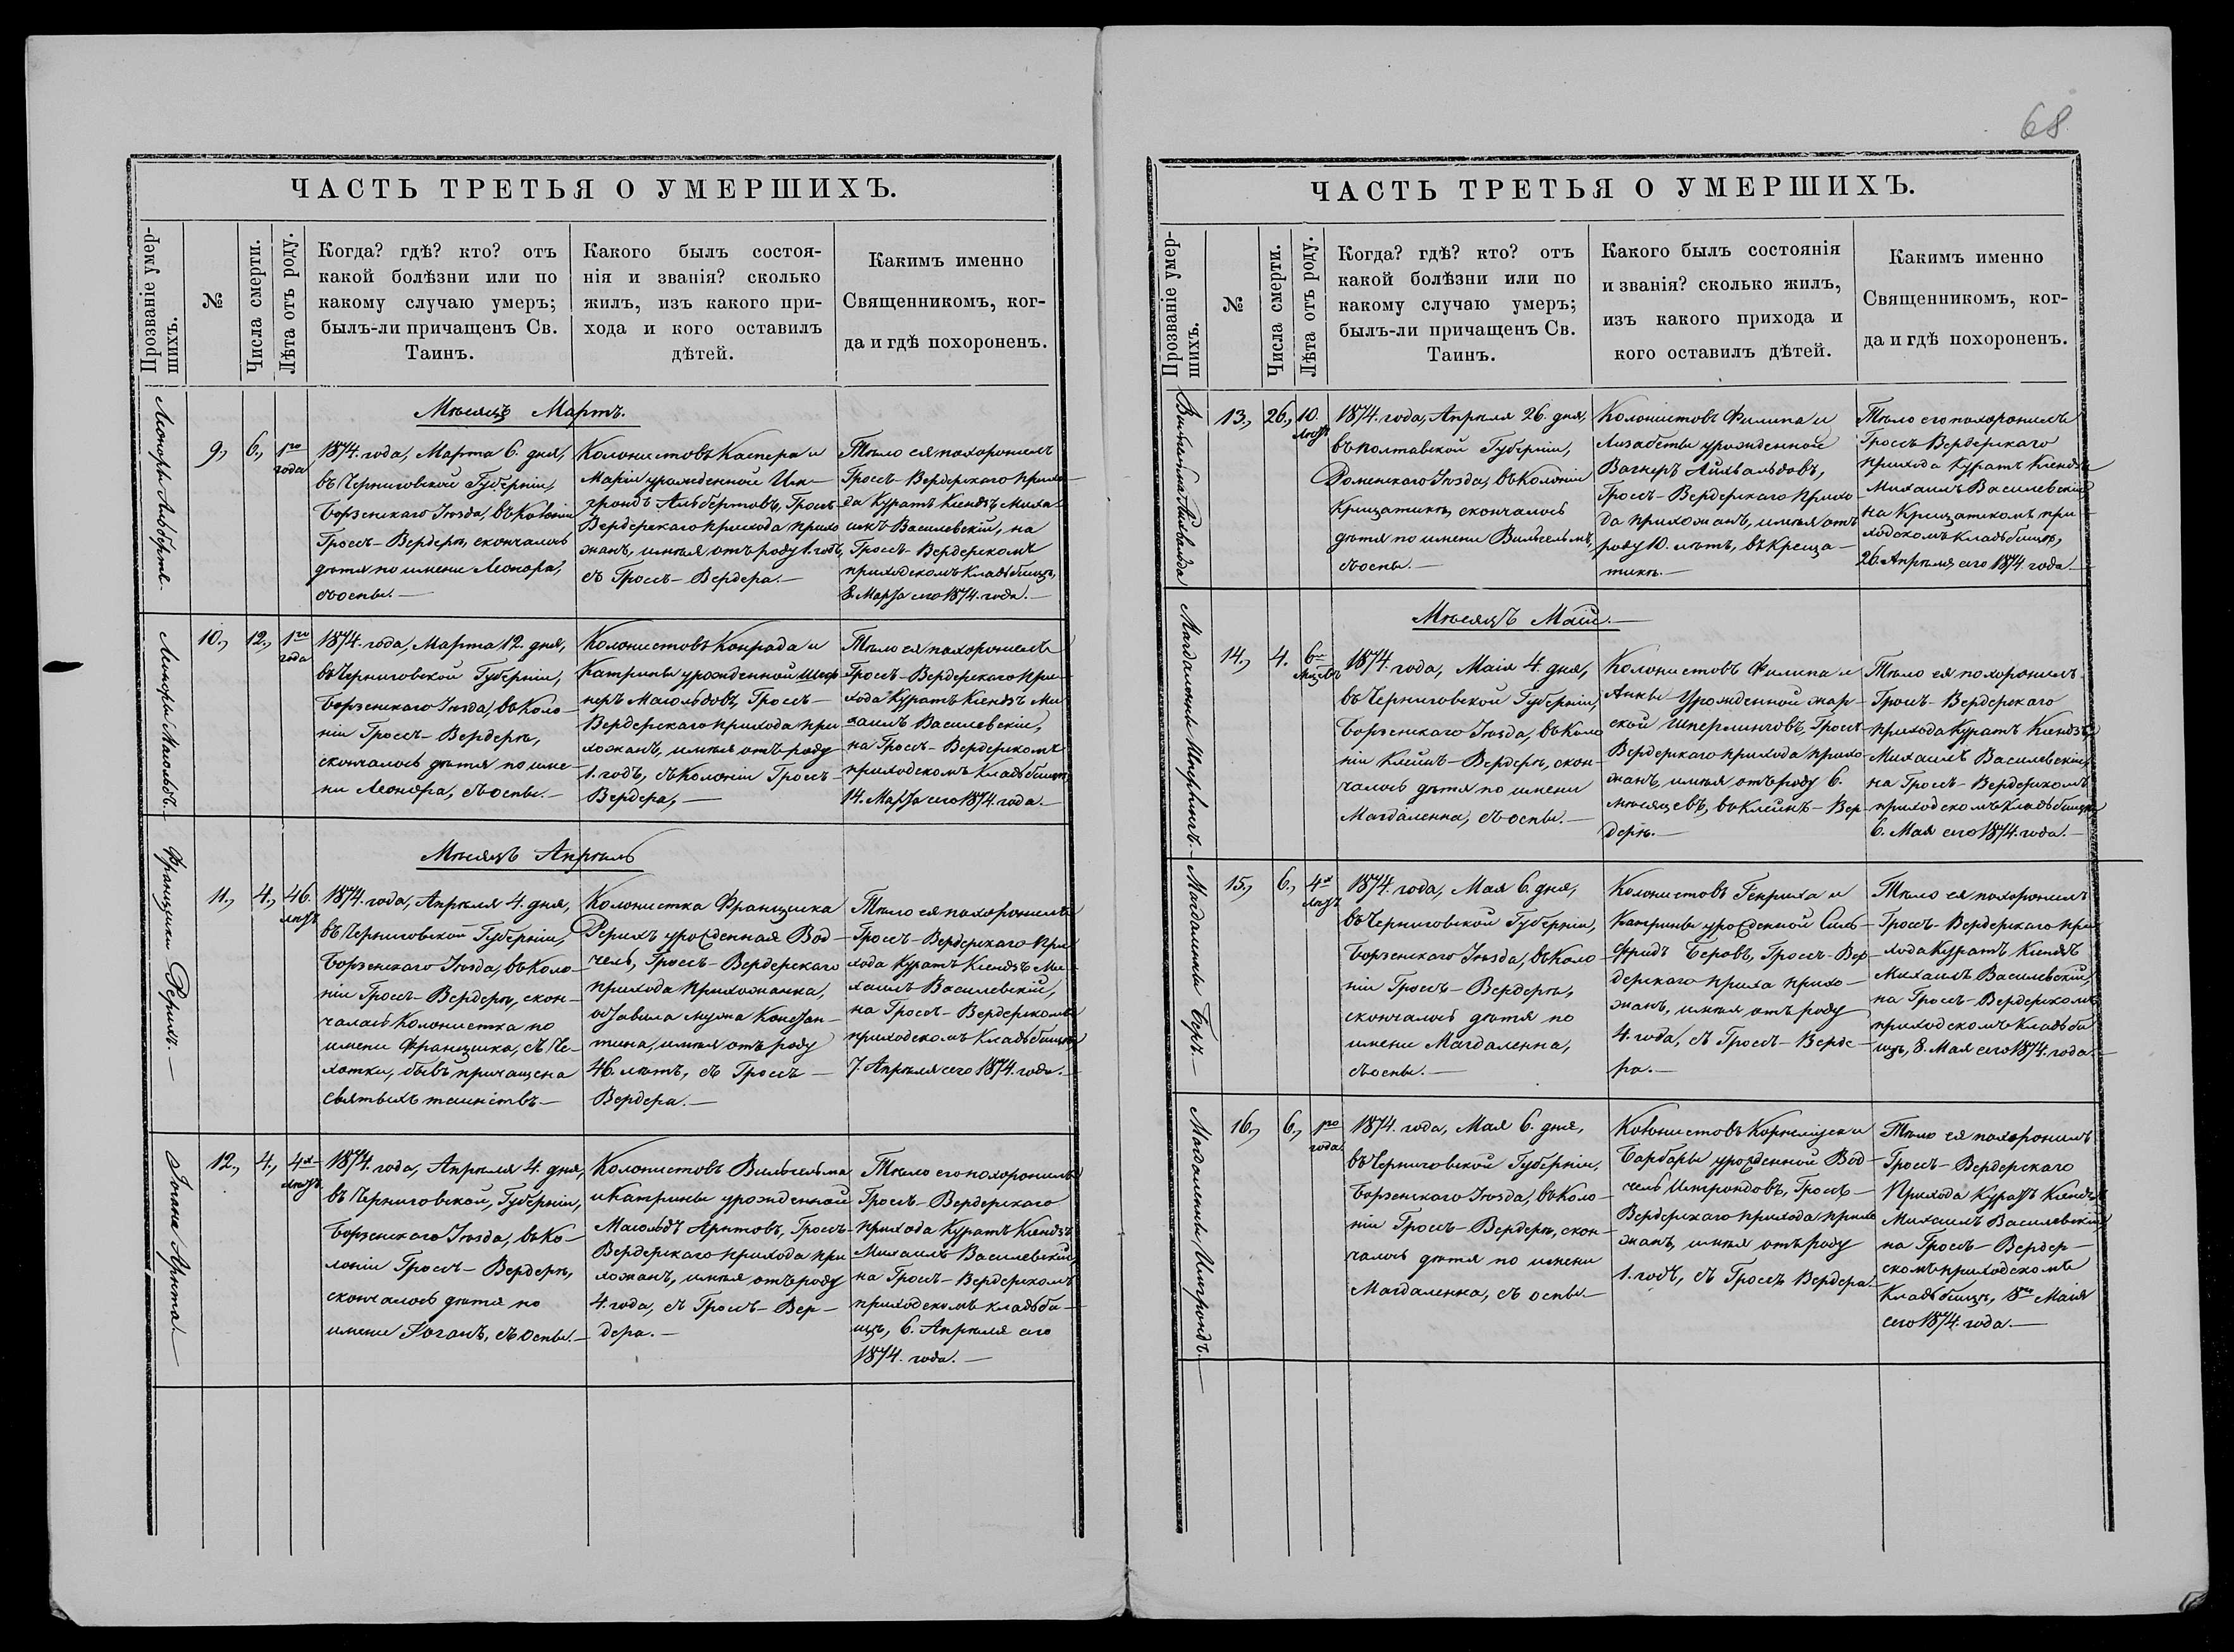 ЧАСТЬ ТРЕТЬЯ О УМЕРШИХЪ.
Прозваніе умер-
шихъ.
№
Числа смерти.
Лѣта отъ роду.
Когда? гдѣ? кто? отъ
какой болѣзни или по
какому случаю умеръ;
былъ-ли причащенъ Св.
Таинъ.
Какого былъ состоя-
нія и званія? сколько
жилъ, изъ какого при-
хода и кого оставилъ
дѣтей.
Какимъ именно
Священникомъ, ког-
да и гдѣ похороненъ.
Мѣсяцъ Мартъ.
Леонора Альберта.
9,
6,
1го
года
1874. года, Марта 6. дня,
въ Черниговской Губерніи,
Борзенскаго Уѣзда, въ Колоніи
Гроссъ-Вердерѣ, скончалось
дѣтя по имени Леонора,
съ оспы.—
Колонистовъ Каспера и
Маріи урожденной Им-
грондъ Альбертовъ, Гроссъ-
Вердерскаго прихода прихо
жанъ, имѣя отъ роду 1. годъ,
съ Гроссъ-Вердера.—
Тѣло ея похоронилъ
Гроссъ-Вердерскаго прихо-
да Куратъ Ксендзъ Миха-
илъ Василевскій, на
Гроссъ-Вердерскомъ
приходскомъ Кладбищѣ,
8. Марта сего 1874. года.—
Леноры Масольдъ.—
10.,
12.,
1го
года
1874. года, Марта 12. дня,
въ Черниговской Губерніи,
Борзенскаго Уѣзда, въ Коло-
ніи Гроссъ-Вердерѣ,
скончалось дѣтя по име-
ни Леонора, съ оспы.—
Колонистовъ Конрада и
Катрины урожденной
неръ Масольдовъ, Гроссъ-
Вердерскаго прихода при
хожанъ, имѣя отъ роду
1. годъ, съ Колоніи Гроссъ-
Вердера,—
Тѣло ея похоронилъ
Гроссъ-Вердерскаго при-
хода Куратъ Ксендзъ Ми
хаилъ Василевскій,
на Гроссъ-Вердерскомъ
приходскомъ Кладбищѣ,
14. Марта сего 1874. года.—
Мѣсяцъ Апрѣль
Францишки Рерихъ.—
11.,
4.,
46.
лѣтъ
1874. года, Апрѣля 4. дня,
въ Черниговской Губерніи,
Борзенскаго Уѣзда, въ Коло-
ніи Гроссъ-Вердерѣ, скон-
чалась Колонистка по
имени Францишка, съ Че-
хотки, бывъ причащена
святыхъ таинствъ—
Колонистка Францишка
Рерихъ урожденная Вод-
чель, Гроссъ-Вердерскаго
прихода прихожанка,
оставила мужа Констан-
тина, имѣя отъ роду
46. лѣтъ, съ Гроссъ-
Вердера.—
Тѣло ея похоронилъ
Гроссъ-Вердерскаго при
хода Куратъ Ксендзъ Ми-
хаилъ Василевскій,
на Гроссъ-Вердерскомъ
приходскомъ Кладбищѣ,
7. Апрѣля сего 1874. года.—
Іогана Арнта.—
12.,
4.,
4х
лѣтъ.
1874. года, Апрѣля 4. дня,
въ Черниговской, Губерніи,
Борзенскаго Уѣзда, въ Ко-
лоніи Гроссъ-Вердерѣ,
скончалось дѣтя по
имени Іоганъ, съ оспы.—
Колонистовъ Вильгельма
и Катрины урожденной
Масольдъ Арнтовъ, Гроссъ-
Вердерскаго прихода при
хожанъ, имѣя отъ роду
4. года, съ Гроссъ-Вер-
дера.—
Тѣло его похоронилъ
Гроссъ-Вердерскаго
прихода Куратъ Ксендзъ
Михаилъ Василевскій,
на Гроссъ-Вердерскомъ
приходскомъ кладби-
щѣ, 6. Апрѣля сего
1874. года.—
68
ЧАСТЬ ТРЕТЬЯ О УМЕРШИХЪ.
Прозваніе умер-
шихъ.
№
Числа смерти.
Лѣта отъ роду.
Когда? гдѣ? кто? отъ
какой болѣзни или по
какому случаю умеръ;
былъ-ли причащенъ Св.
Таинъ.
Какого былъ состоянія
и званія? сколько жилъ,
изъ какого прихода и
кого оставилъ дѣтей.
Какимъ именно
Священникомъ, ког-
да и гдѣ похороненъ.
13.,
26.,
10.
лѣтъ
1874. года, Апрѣля 26. дня,
въ Полтавской Губерніи,
Роменскаго Уѣзда, въ Колоніи
Крещатикъ, скончалось
дѣтя по имени Вильгельмъ,
съ оспы.—
Колонистовъ Филипа и
Лизабеты урожденной
Вагнеръ
Гроссъ-Вердерскаго прихо
да прихожанъ, имѣя отъ
роду 10. лѣтъ, въ Креща-
тикѣ.—
Тѣло его похоронилъ
Гроссъ Вердерскаго
прихода Куратъ Ксендзъ
Михаилъ Василевскій
на Крещатскомъ при
ходскомъ Кладбищѣ,
26. Апрѣля, сего 1874 года
Мѣсяцъ Май.—
Магдалены Шперлингъ.—
14.,
4.
6и
мѣсяцевъ
1874. года, Маія 4. дня,
въ Черниговской Губерніи,
Борзенскаго Уѣзда, въ Коло
ніи Клейнъ-Вердерѣ, скон-
чалось дѣтя по имени
Магдаленна, съ оспы.—
Колонистовъ Филипа и
Анны Урожденной Мар-
ской Шперлинговъ, Гроссъ-
Вердерскаго прихода прихо-
жанъ, имѣя отъ роду 6.
мѣсяцевъ, въ Клейнъ-Вер-
дерѣ.—
Тѣло ея похоронилъ
Гроссъ-Вердерскаго
прихода Куратъ Ксендзъ
Михаилъ Василевскій,
на Гроссъ-Вердерскомъ
приходскомъ Кладбищѣ
6. Мая сего 1874. года.—
Магдалины Беръ.—
15.,
6.,
4х
лѣтъ
1874. года, Мая 6. дня,
въ Черниговской Губерніи,
Борзенскаго Уѣзда, въ Коло
ніи Гроссъ-Вердерѣ,
скончалось дѣтя по
имени Магдаленна,
съ оспы.—
Колонистовъ Генриха и
Катрины урожденной Зиль-
фридъ Беровъ, Гроссъ-Вер
дерскаго приха прихо-
жанъ, имѣя отъ роду
4. года, съ Гроссъ-Верде-
ра.—
Тѣло ея похоронилъ
Гроссъ-Вердерскаго при-
хода Куратъ Ксендзъ
Михаилъ Василевскій,
на Гроссъ-Вердерскомъ
приходскомъ Кладби
щѣ, 8. Мая сего 1874. года.—
Магдалены Имгрондъ.—
16.,
6.,
1го
года
1874. года, Мая 6. дня,
въ Черниговской Губерніи,
Борзенскаго Уѣзда, въ Коло-
ніи Гроссъ-Вердерѣ, скон-
чалось дѣтя по имени
Магдаленна, съ оспы.—
Колонистовъ Корнелиуса и
Барбары урожденной Вод-
чель Имгрондовъ, Гроссъ-
Вердерскаго прихода прихо
жанъ, имѣя отъ роду
1. годъ, съ Гроссъ Вердера.—
Тѣло ея похоронилъ
Гроссъ-Вердерскаго
Прихода Куратъ Ксендзъ
Михаилъ Василевскій,
на Гроссъ-Вердер-
скомъ приходскомъ
Кладбищѣ, 8го Маія
сего 1874. года.—